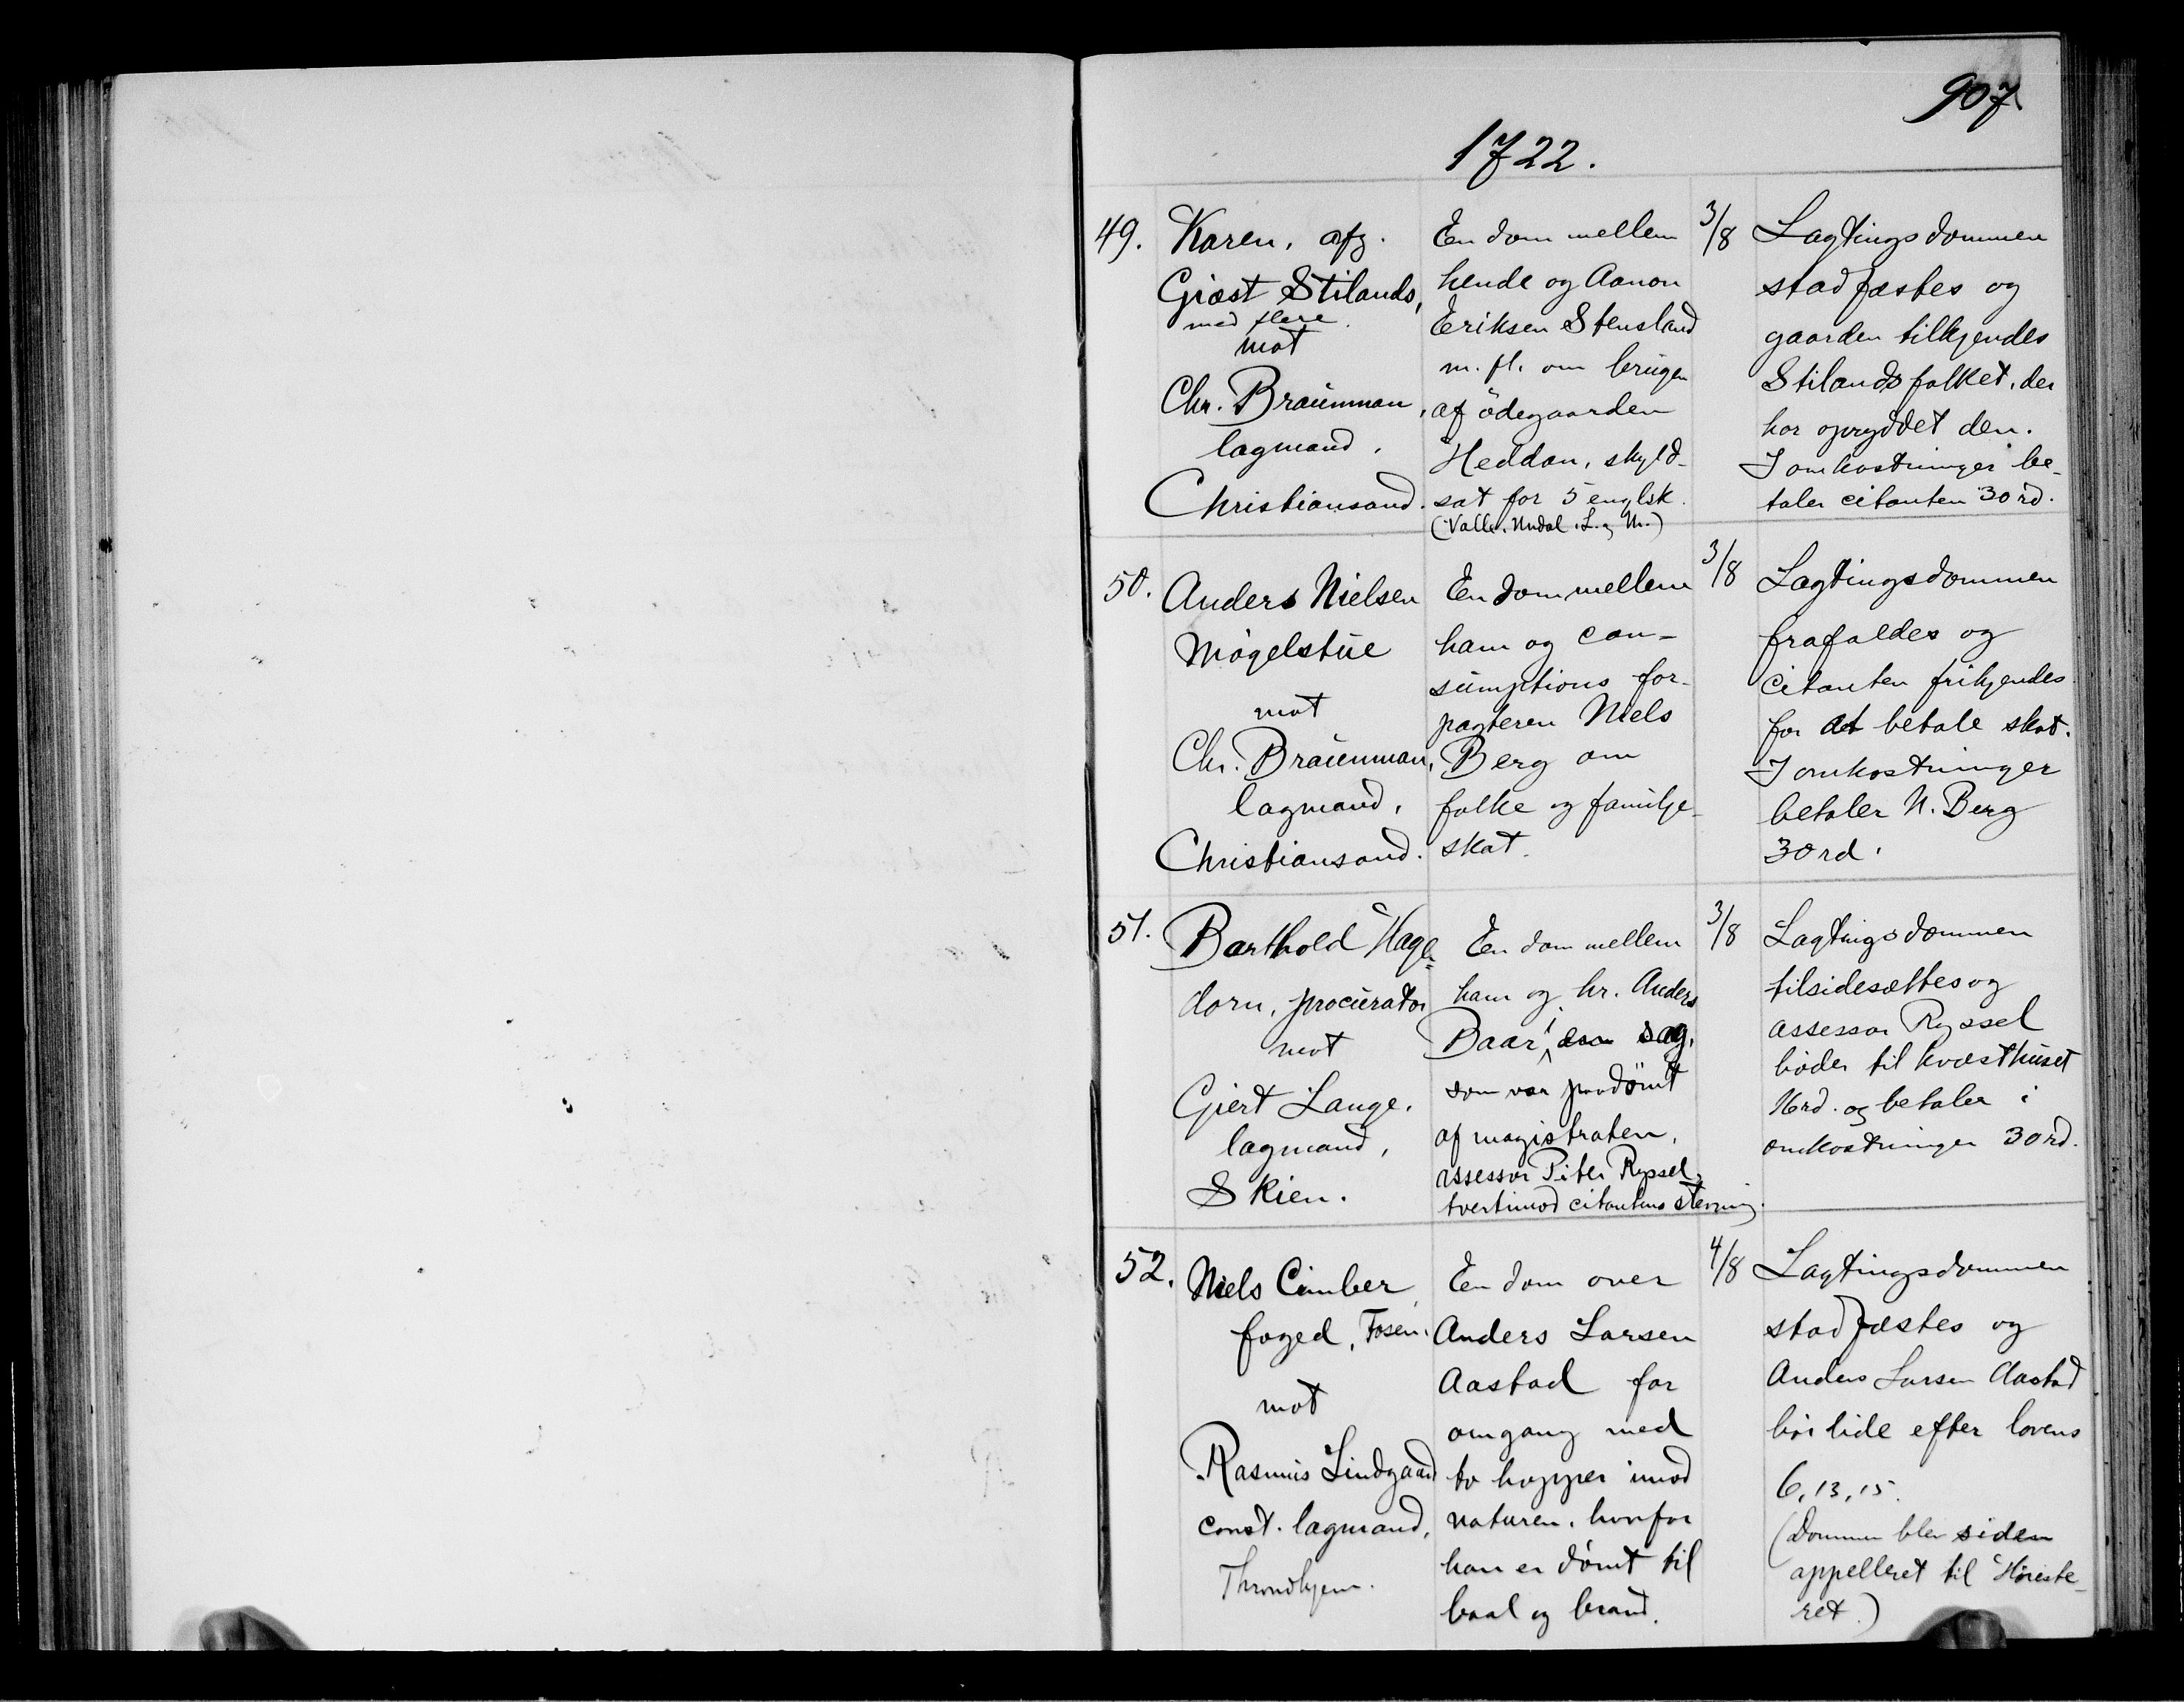 907
1722.
49.
Karen, afg.
Giæst Stilands,
med flere.
mot
Chr. Braünman,
lagmand,
Christiansand.
En dom mellem
hende og Aanon
Eriksen Stensland
m. fl. om brugen
af ödegaarden
Heddan, skyld-
sat for 5 englsk.
(Valle. Undal. L. og M.)
3/8
Lagtingsdommen
stadfæstes og
gaarden tilkjendes
Stilandsfolket, der
har opryddet den.
I omkostninger be-
taler citanten 30 rd.
50.
Anders Nielsen
Mögelstüe
mot
Chr. Braünman,
lagmand,
Christiansand.
En dom mellem
ham og con-
sumptions for-
pagteren Niels
Berg om
folke og familje-
skat.
3/8
Lagtingsdommen
frafaldes og
citanten frikjendes
for at betale skat.
I omkostninger
betaler N. Berg
30 rd.
51.
Barthold Hage-
dorn, procürator
mot
Giert Lange,
lagmand,
Skien.
En dom mellem
ham og hr. Anders
Baar i en sag,
som var paadömt
af magistraten,
assessor Piter Ryssel,
tvertimod citantens stevning.
3/8
Lagtingsdommen
tilsidesættes og
assessor Ryssel
böder til kvæsthüset
16 rd. og betaler i
omkostninger 30 rd.
52.
Niels Cimber,
foged, Fosen.
mot
Rasmüs Lindgaard
const. lagmand,
Throndhjem.
En dom over
Anders Larsen
Aastad for
omgang med
to hopper imod
naturen, hvorfor
han er dömt til
baal og brand.
4/8
Lagtingsdommen
stadfæstes og
Anders Larsen Aastad
bör lide efter lovens
6, 13, 15.
(Dommen blev siden
appelleret til Höieste-
ret.)